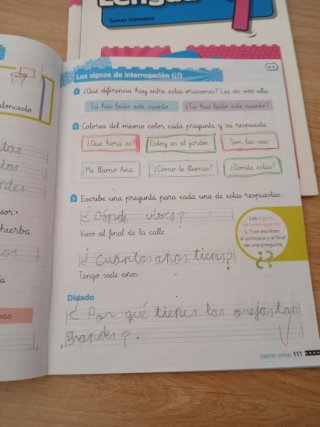 Lengua
Tercer trimestre
1
Los signos de interrogación (¿?)
1 ¿Qué diferencia hay entre estas oraciones? Lee en voz alta.
Tú has leído este cuento.
¿Tú has leído este cuento?
2 Colorea del mismo color cada pregunta y su respuesta.
¿Qué hora es?
Estoy en el jardín.
Son las seis.
Me llamo Ana.
¿Cómo te llamas?
¿Dónde estás?
3 Escribe una pregunta para cada una de estas respuestas.
¿Dónde vives?
Vivo al final de la calle.
¿Cuantos años tienes?
Tengo siete años.
Los signos
de interrogación
(¿?) se escriben
al principio y al final
de una pregunta.
¿?
Dictado
¿Por qué tienes las orejas tan
grandes?
ciento once 111
baloncesto
hierba